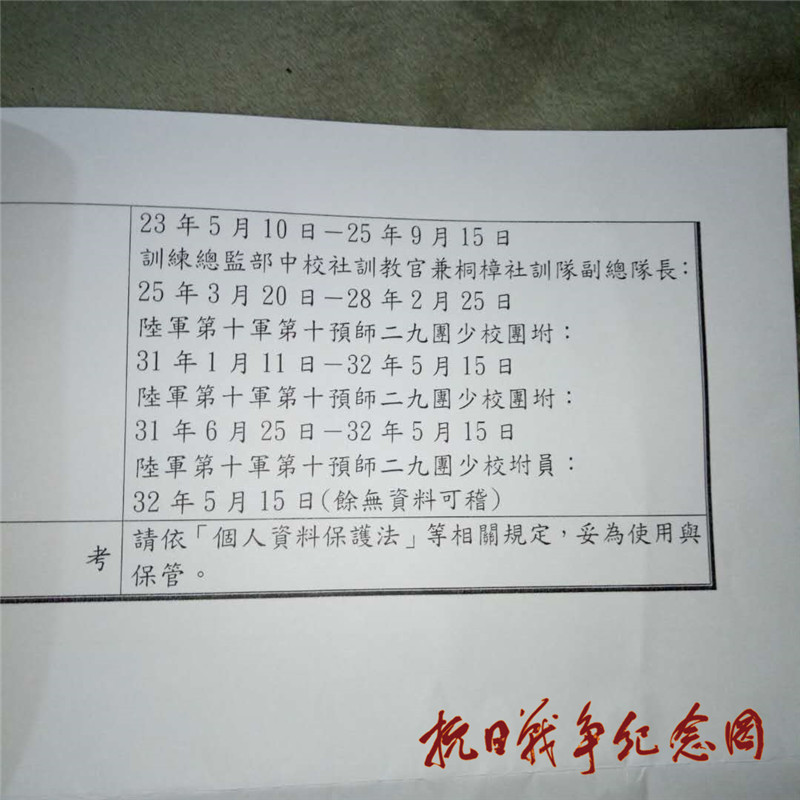 23年5月10日－25年9月15日
訓練總監部中校社訓教官兼桐樟社訓隊副總隊長：
25年3月20日－28年2月25日
陸軍第十軍第十預師二九團少校團坿：
31年1月11日－32年5月15日
陸軍第十軍第十預師二九團少校團坿：
31年6月25日－32年5月15日
陸軍第十軍第十預師二九團少校坿員：
32年5月15日(餘無資料可稽)
考
請依「個人資料保護法」等相關規定，妥為使用與
保管。
抗日戰争纪念网